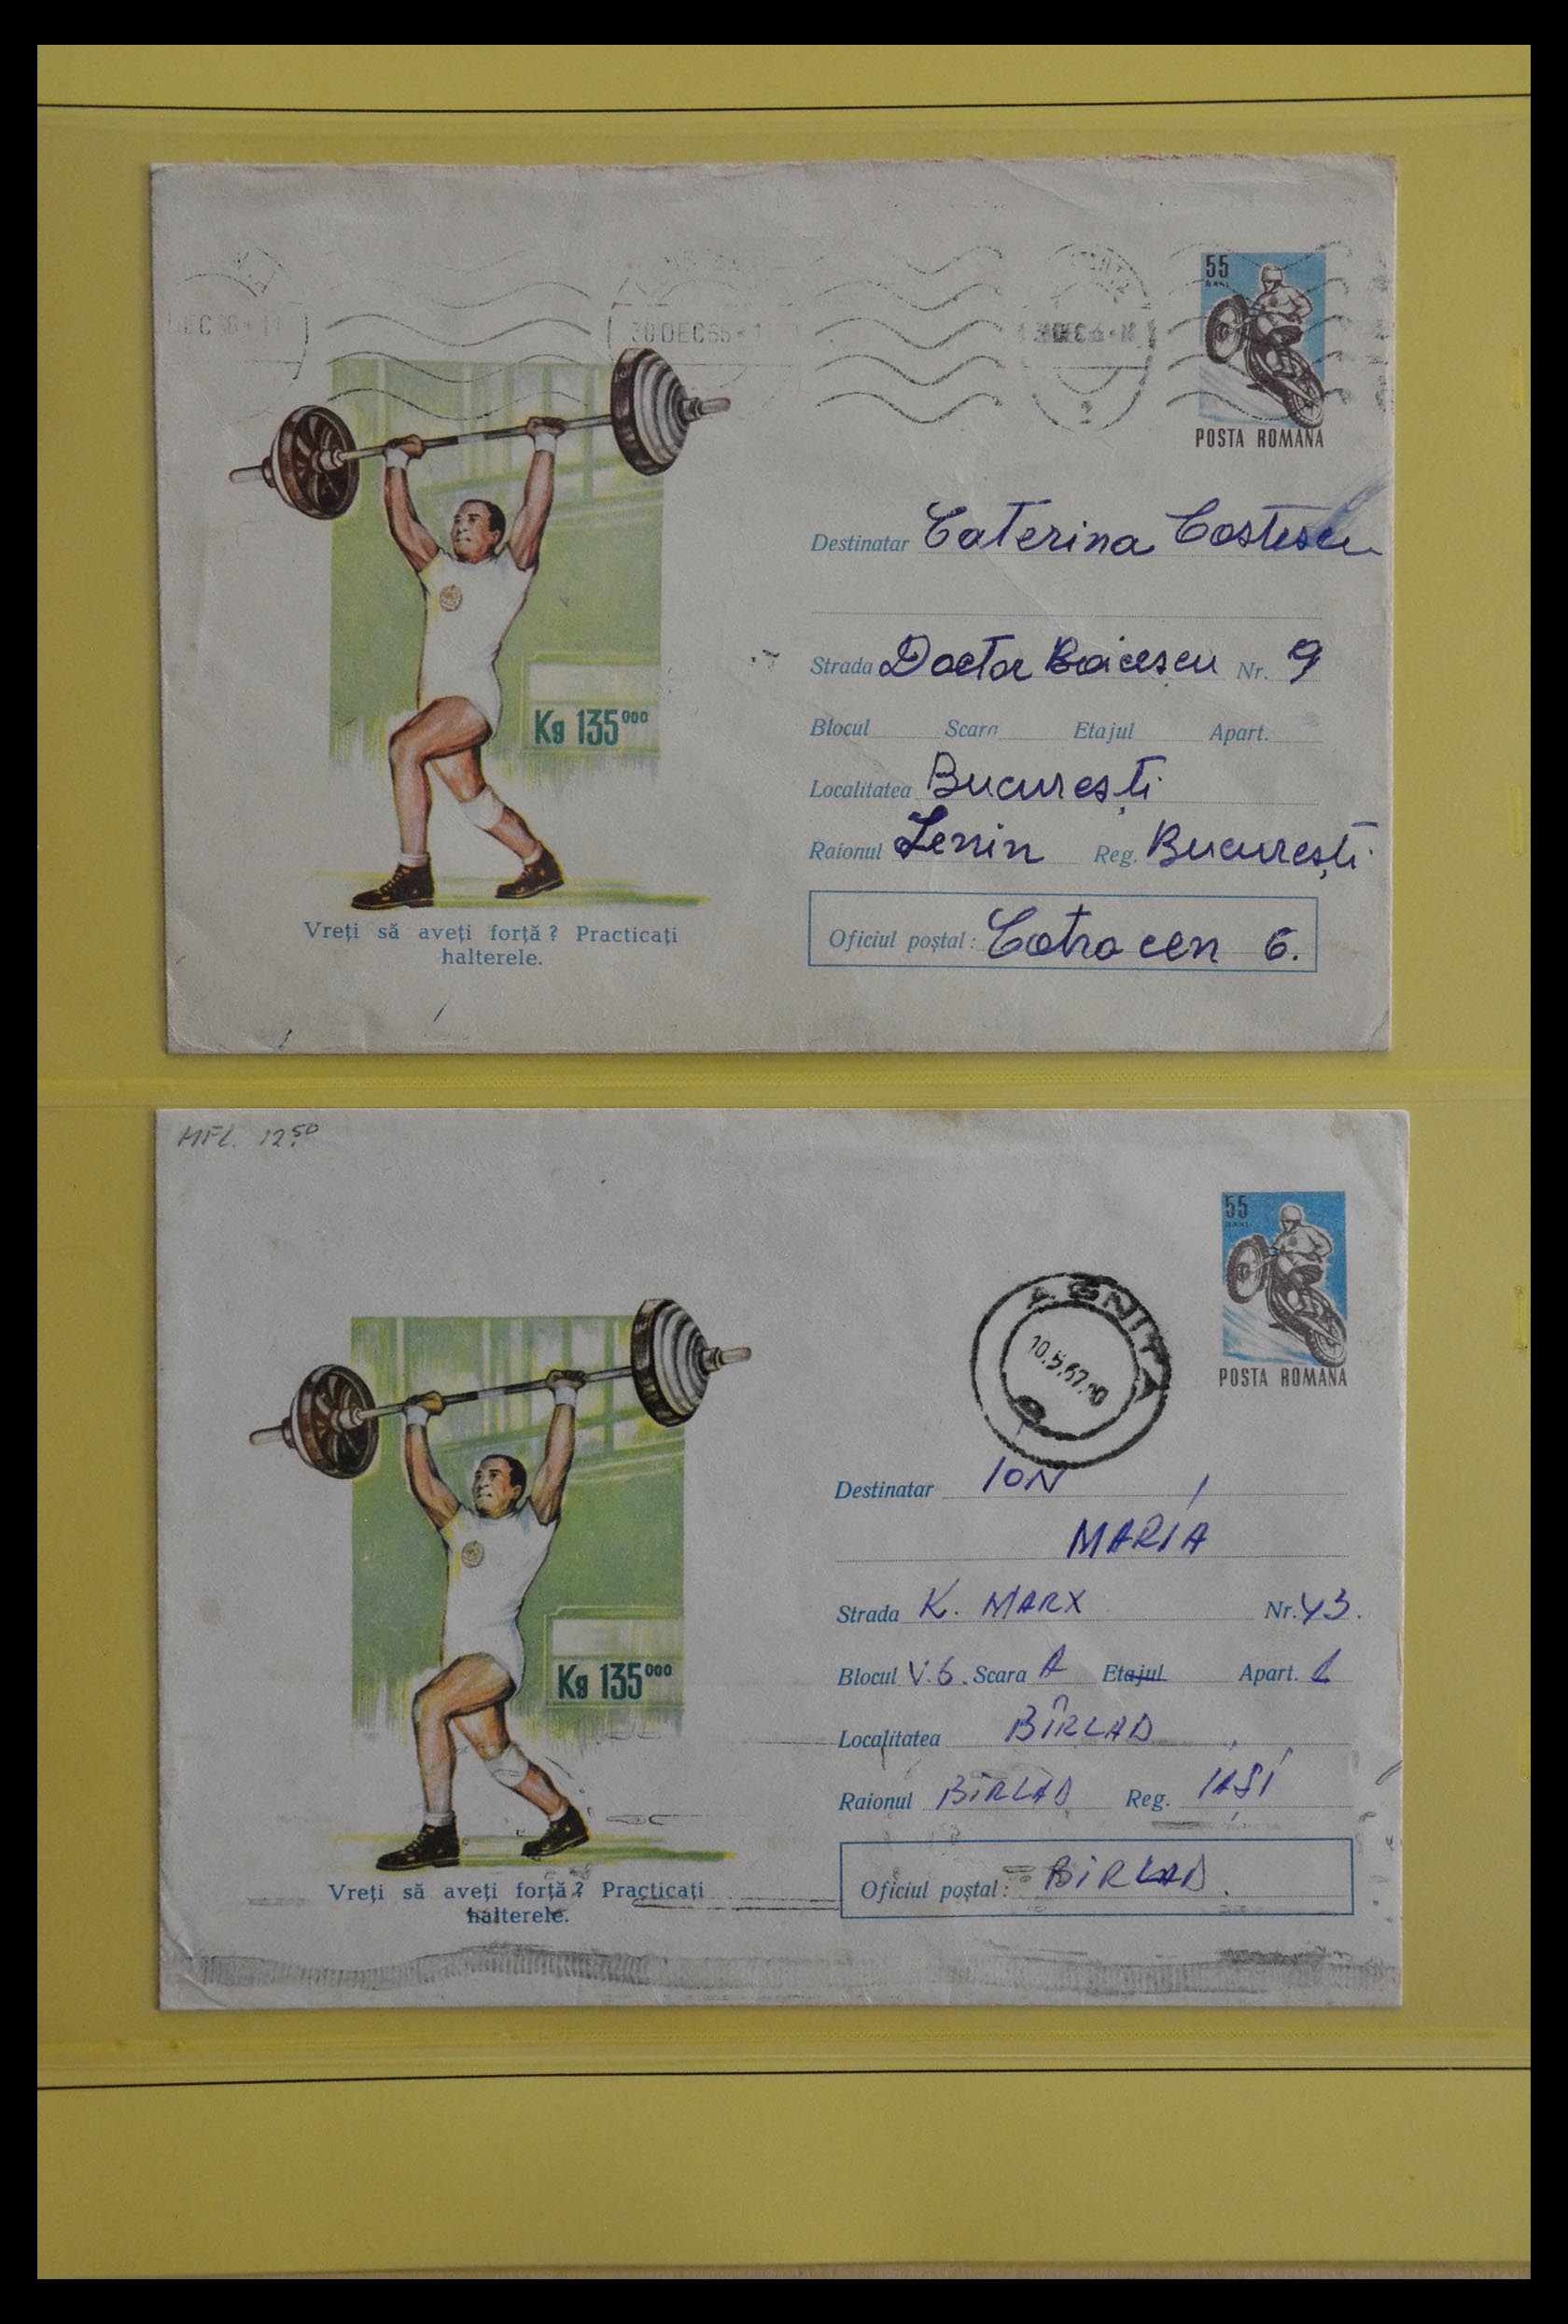 30DEC65-1
55
BANI
POSTA ROMANA
Destinatar Caterina Costescu
Strada Doctor Boicescu Nr. 9
Blocul Scara Etajul Apart.
Localitatea București
Raionul Lenin Reg. București
Oficiul poștal: Cotrocen 6.
Kg 135⁰⁰⁰
Vreți să aveți forță? Practicați
halterele.
HFL. 12.⁵⁰
55
BANI
POSTA ROMANA
AGNITA
10.5.67
Destinatar ION
MARIA
Strada K. MARX Nr. 43.
Blocul V.6. Scara A Etajul Apart. 1
Localitatea BÎRLAD
Raionul BÎRLAD Reg. IAȘI
Oficiul poștal: BÎRLAD.
Kg 135⁰⁰⁰
Vreți să aveți forță? Practicați
halterele.